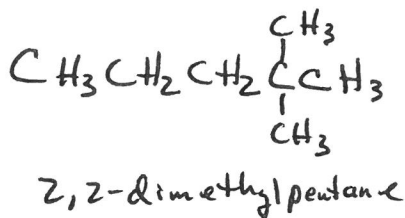 CH3
CH3CH2CH2CCH3
CH3
2,2-dimethylpentane